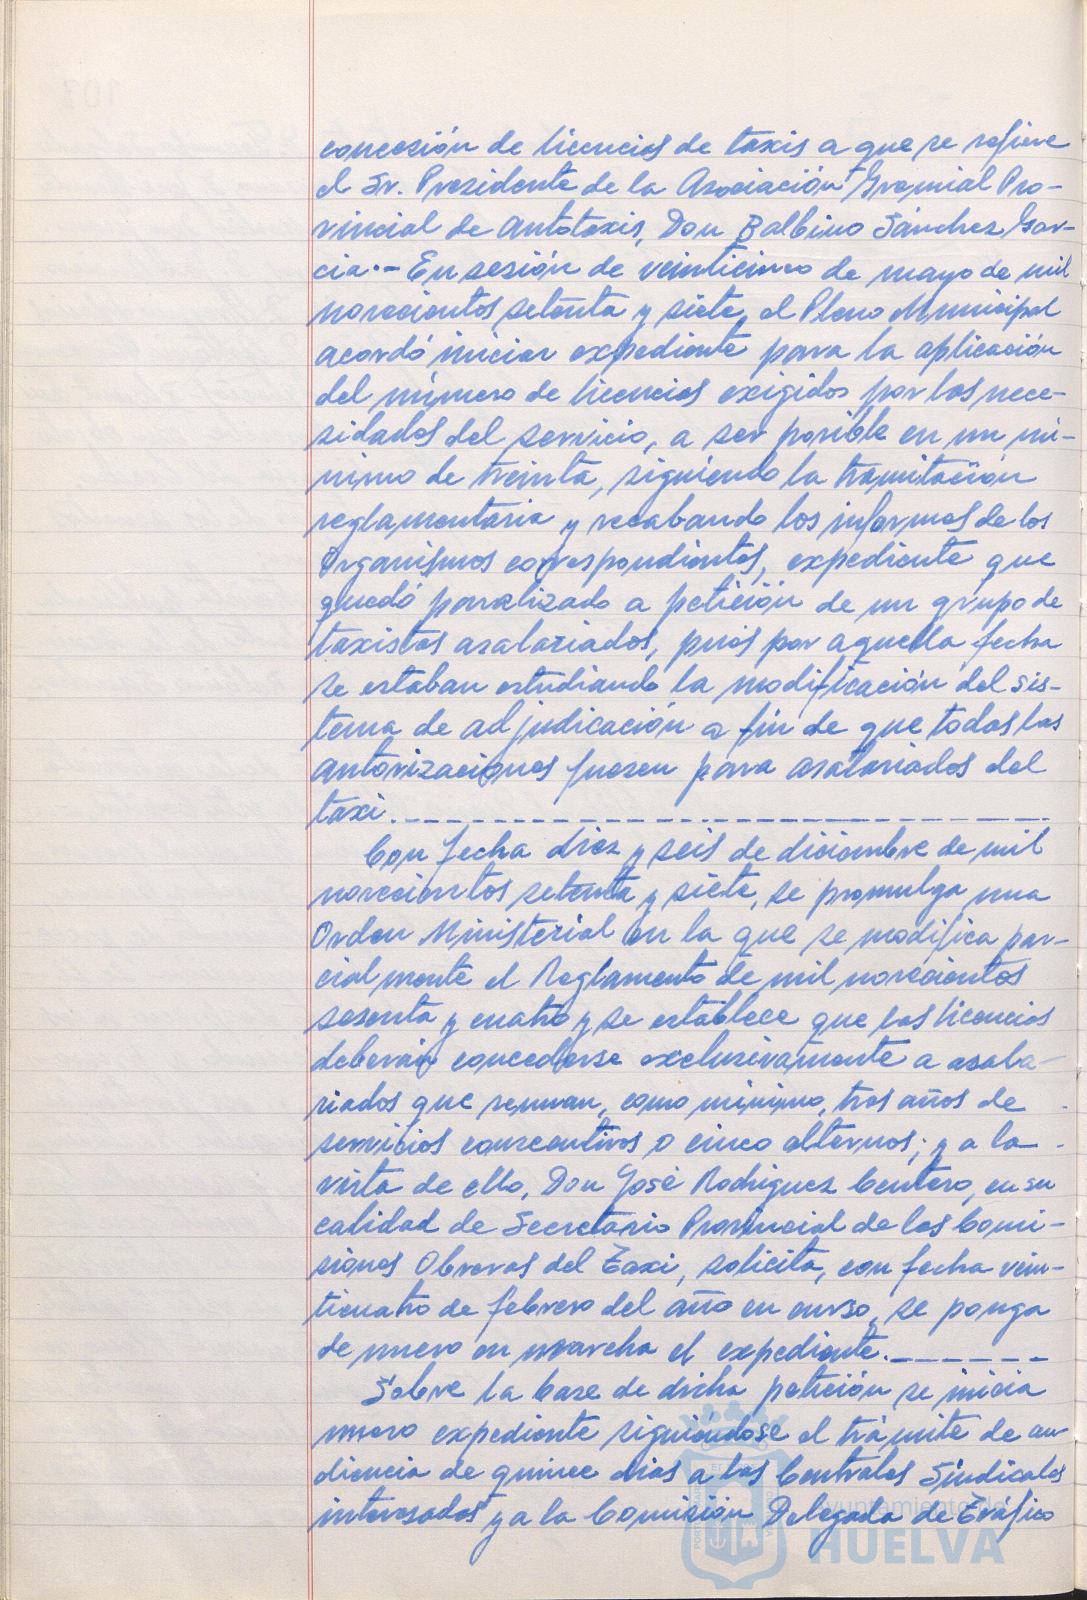 concesión de licencias de taxis a que se refiere
el Sr. Presidente de la Asociación Gremial Pro-
vincial de Autotaxis, Don Balbino Sánchez Gar-
cia.- En sesión de veinticinco de mayo de mil
novecientos setenta y siete, el Pleno Municipal
acordó iniciar expediente para la aplicación
del número de licencias exigidas por las nece-
sidades del servicio, a ser posible en un mí-
nimo de treinta, siguiendo la tramitación
reglamentaria y recabando los informes de los
Organismos correspondientes, expediente que
quedó paralizado a petición de un grupo de
taxistas asalariados, pues por aquella fecha
se estaban estudiando la modificación del sis-
tema de adjudicación a fin de que todas las
autorizaciones fuesen para asalariados del
taxi.
Con fecha diez y seis de diciembre de mil
novecientos setenta y siete, se promulga una
Orden Ministerial en la que se modifica par-
cialmente el Reglamento de mil novecientos
sesenta y cuatro y se establece que las licencias
deberán concederse exclusivamente a asala-
riados que reunan, como mínimo, tres años de
servicios consecutivos o cinco alternos; y a la
vista de ello, Don José Rodriguez Centeno, en su
calidad de Secretario Provincial de las Comi-
siones Obreras del Taxi, solicita, con fecha vein-
ticuatro de febrero del año en curso, se ponga
de nuevo en marcha el expediente.
Sobre la base de dicha petición se inicia
nuevo expediente siguiéndose el trámite de au-
diencia de quince dias a las Centrales Sindicales
interesadas y a la Comisión Delegada de Tráfico
Ayuntamiento de
HUELVA